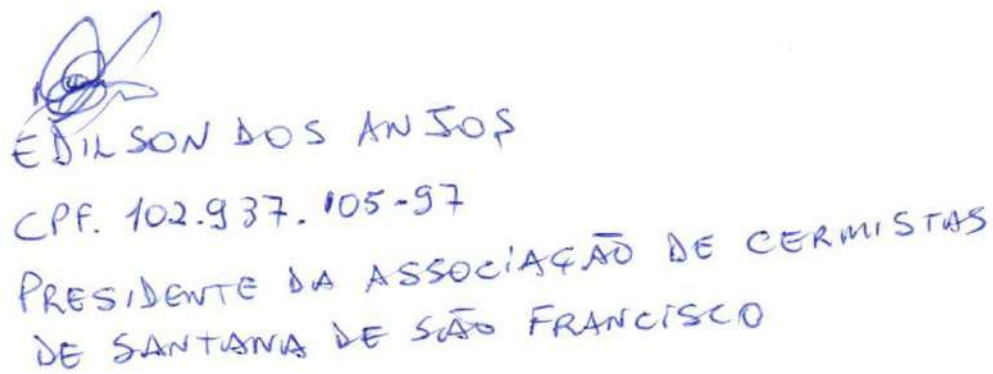 EDILSON DOS ANJOS
CPF. 102.937.105-97
PRESIDENTE DA ASSOCIAÇÃO DE CERMISTAS
DE SANTANA DE SÃO FRANCISCO